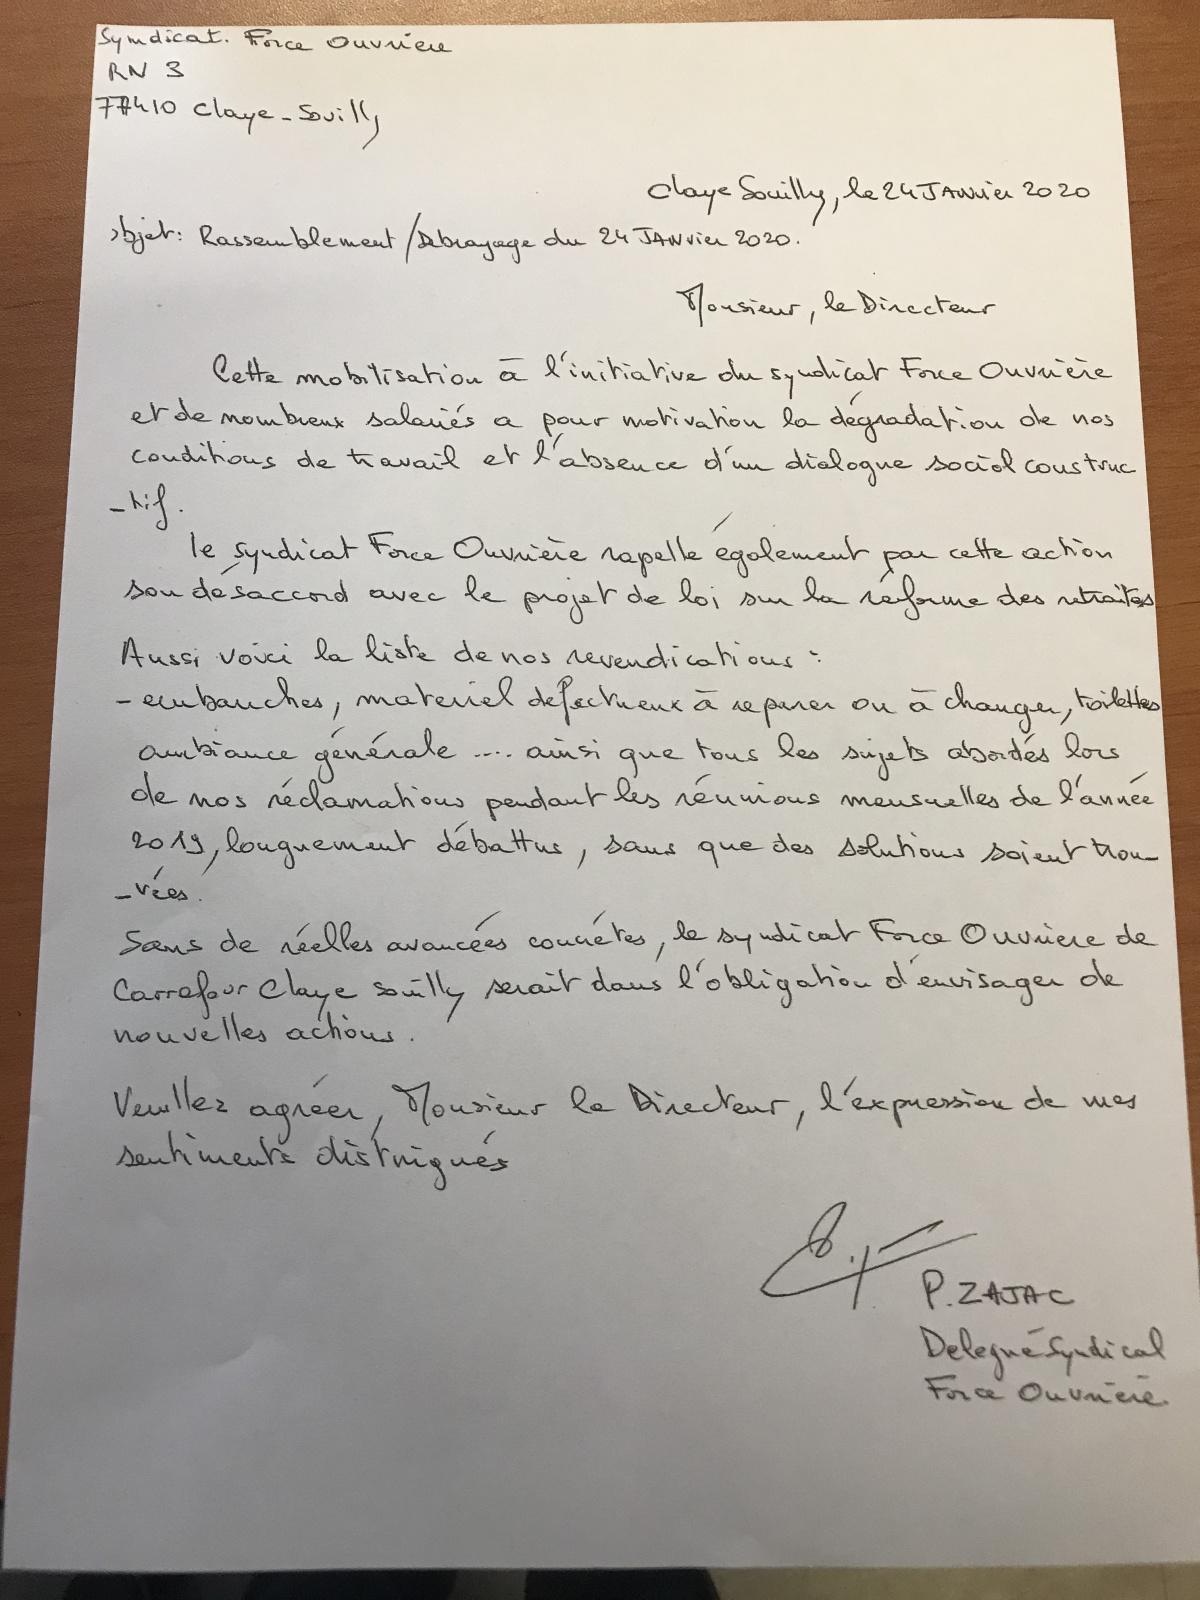 Syndicat. Force Ouvriere
RN 3
77410 Claye-Souilly
Claye Souilly, le 24 JANvier 2020
objet: Rassemblement/Debrayage du 24 JANvier 2020.
Monsieur, le Directeur
Cette mobilisation à l'initiative du syndicat Force Ouvrière
et de nombreux salariés a pour motivation la dégradation de nos
conditions de travail et l'absence d'un dialogue social construc
-tif.
le syndicat Force Ouvrière rapelle également par cette action
son désaccord avec le projet de loi sur la réforme des retraites
Aussi voici la liste de nos revendications :
- embauches, materiel defectueux à reparer ou à changer, toilettes
ambiance générale .... ainsi que tous les sujets abordés lors
de nos réclamations pendant les réunions mensuelles de l'année
2019, longuement débattus, sans que des solutions soient trou-
-vées.
Sans de réelles avancées concrètes, le syndicat Force Ouvriere de
Carrefour Claye souilly serait dans l'obligation d'envisager de
nouvelles actions.
Veuillez agréer, Monsieur le Directeur, l'expression de mes
sentiments distingués
P. ZAJAC
Delegué Syndical
Force Ouvrière.